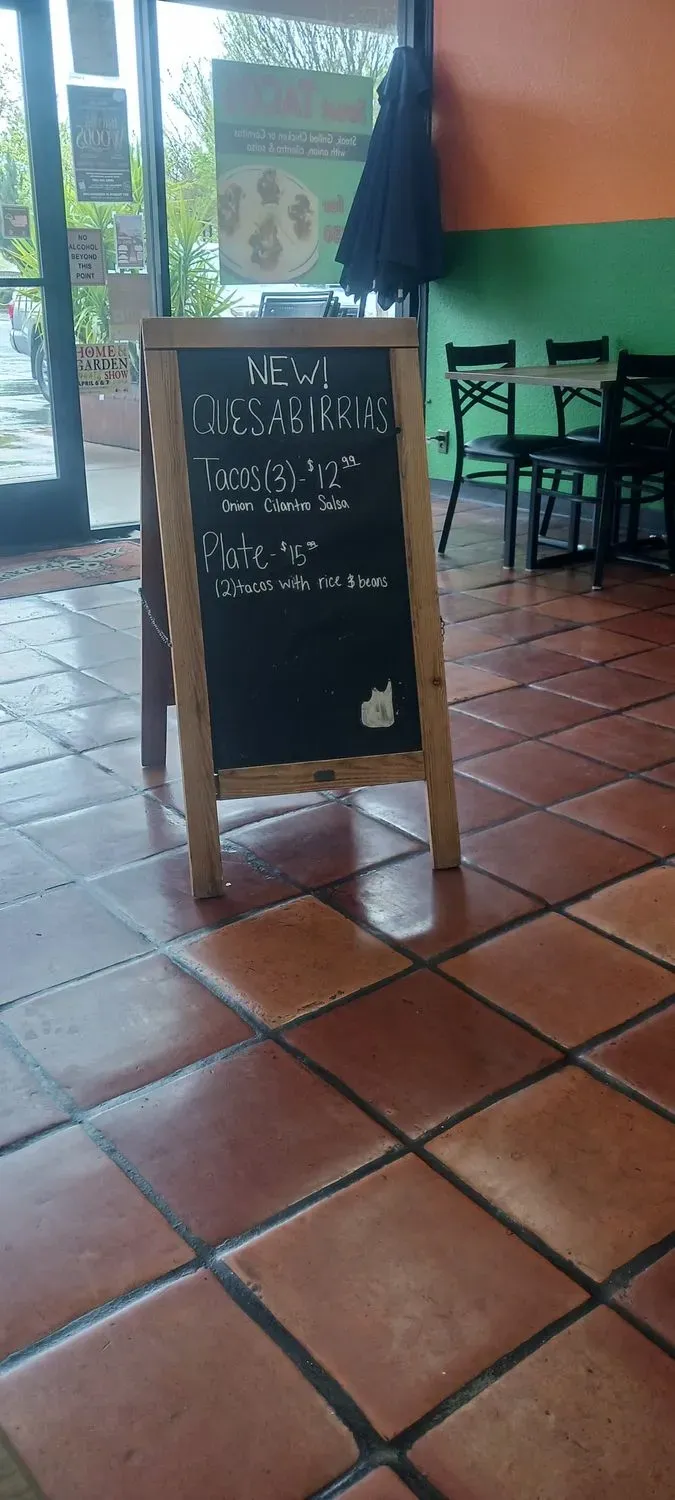 NEW!
QUESABIRRIAS
Tacos (3) - $12 99
Onion Cilantro Salsa
Plate - $15 99
(2) tacos with rice & beans
TACOS
Steak, Grilled Chicken or Carnitas
with onion, cilantro & salsa
WOODS
NO
ALCOHOL
BEYOND
THIS
POINT
HOME &
GARDEN
SHOW
APRIL 6 & 7